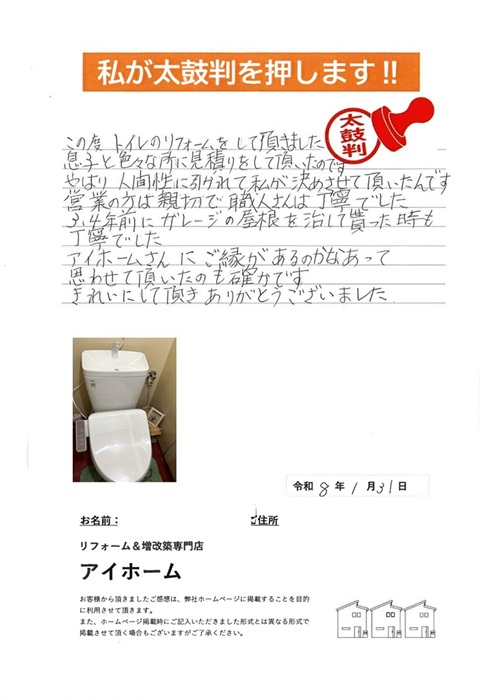 私が太鼓判を押します!!
太鼓判
この度 トイレのリフォームをして頂きました
息子と色々な所に見積りをして頂いたのです
やはり 人間性に引かれて私が決めさせて頂いたんです
営業の方は親切で職人さんは丁寧でした
3,4年前にガレージの屋根を治して貰った時も
丁寧でした
アイホームさんにご縁があるのかなあって
思わせて頂いたのも確かです
きれいにして頂きありがとうございました
令和 8 年 1 月 31 日
お名前: ご住所
リフォーム&増改築専門店
アイホーム
お客様から頂きましたご感想は、弊社ホームページに掲載することを目的
に利用させて頂きます。
また、ホームページ掲載時にご記入いただきました形式とは異なる形式で
掲載させて頂く場合もございますがご了承ください。